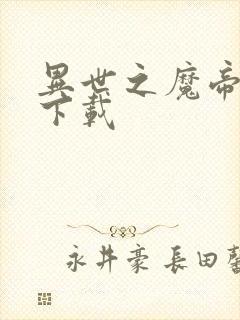 異世之魔帝
下載
永井豪 長田馨